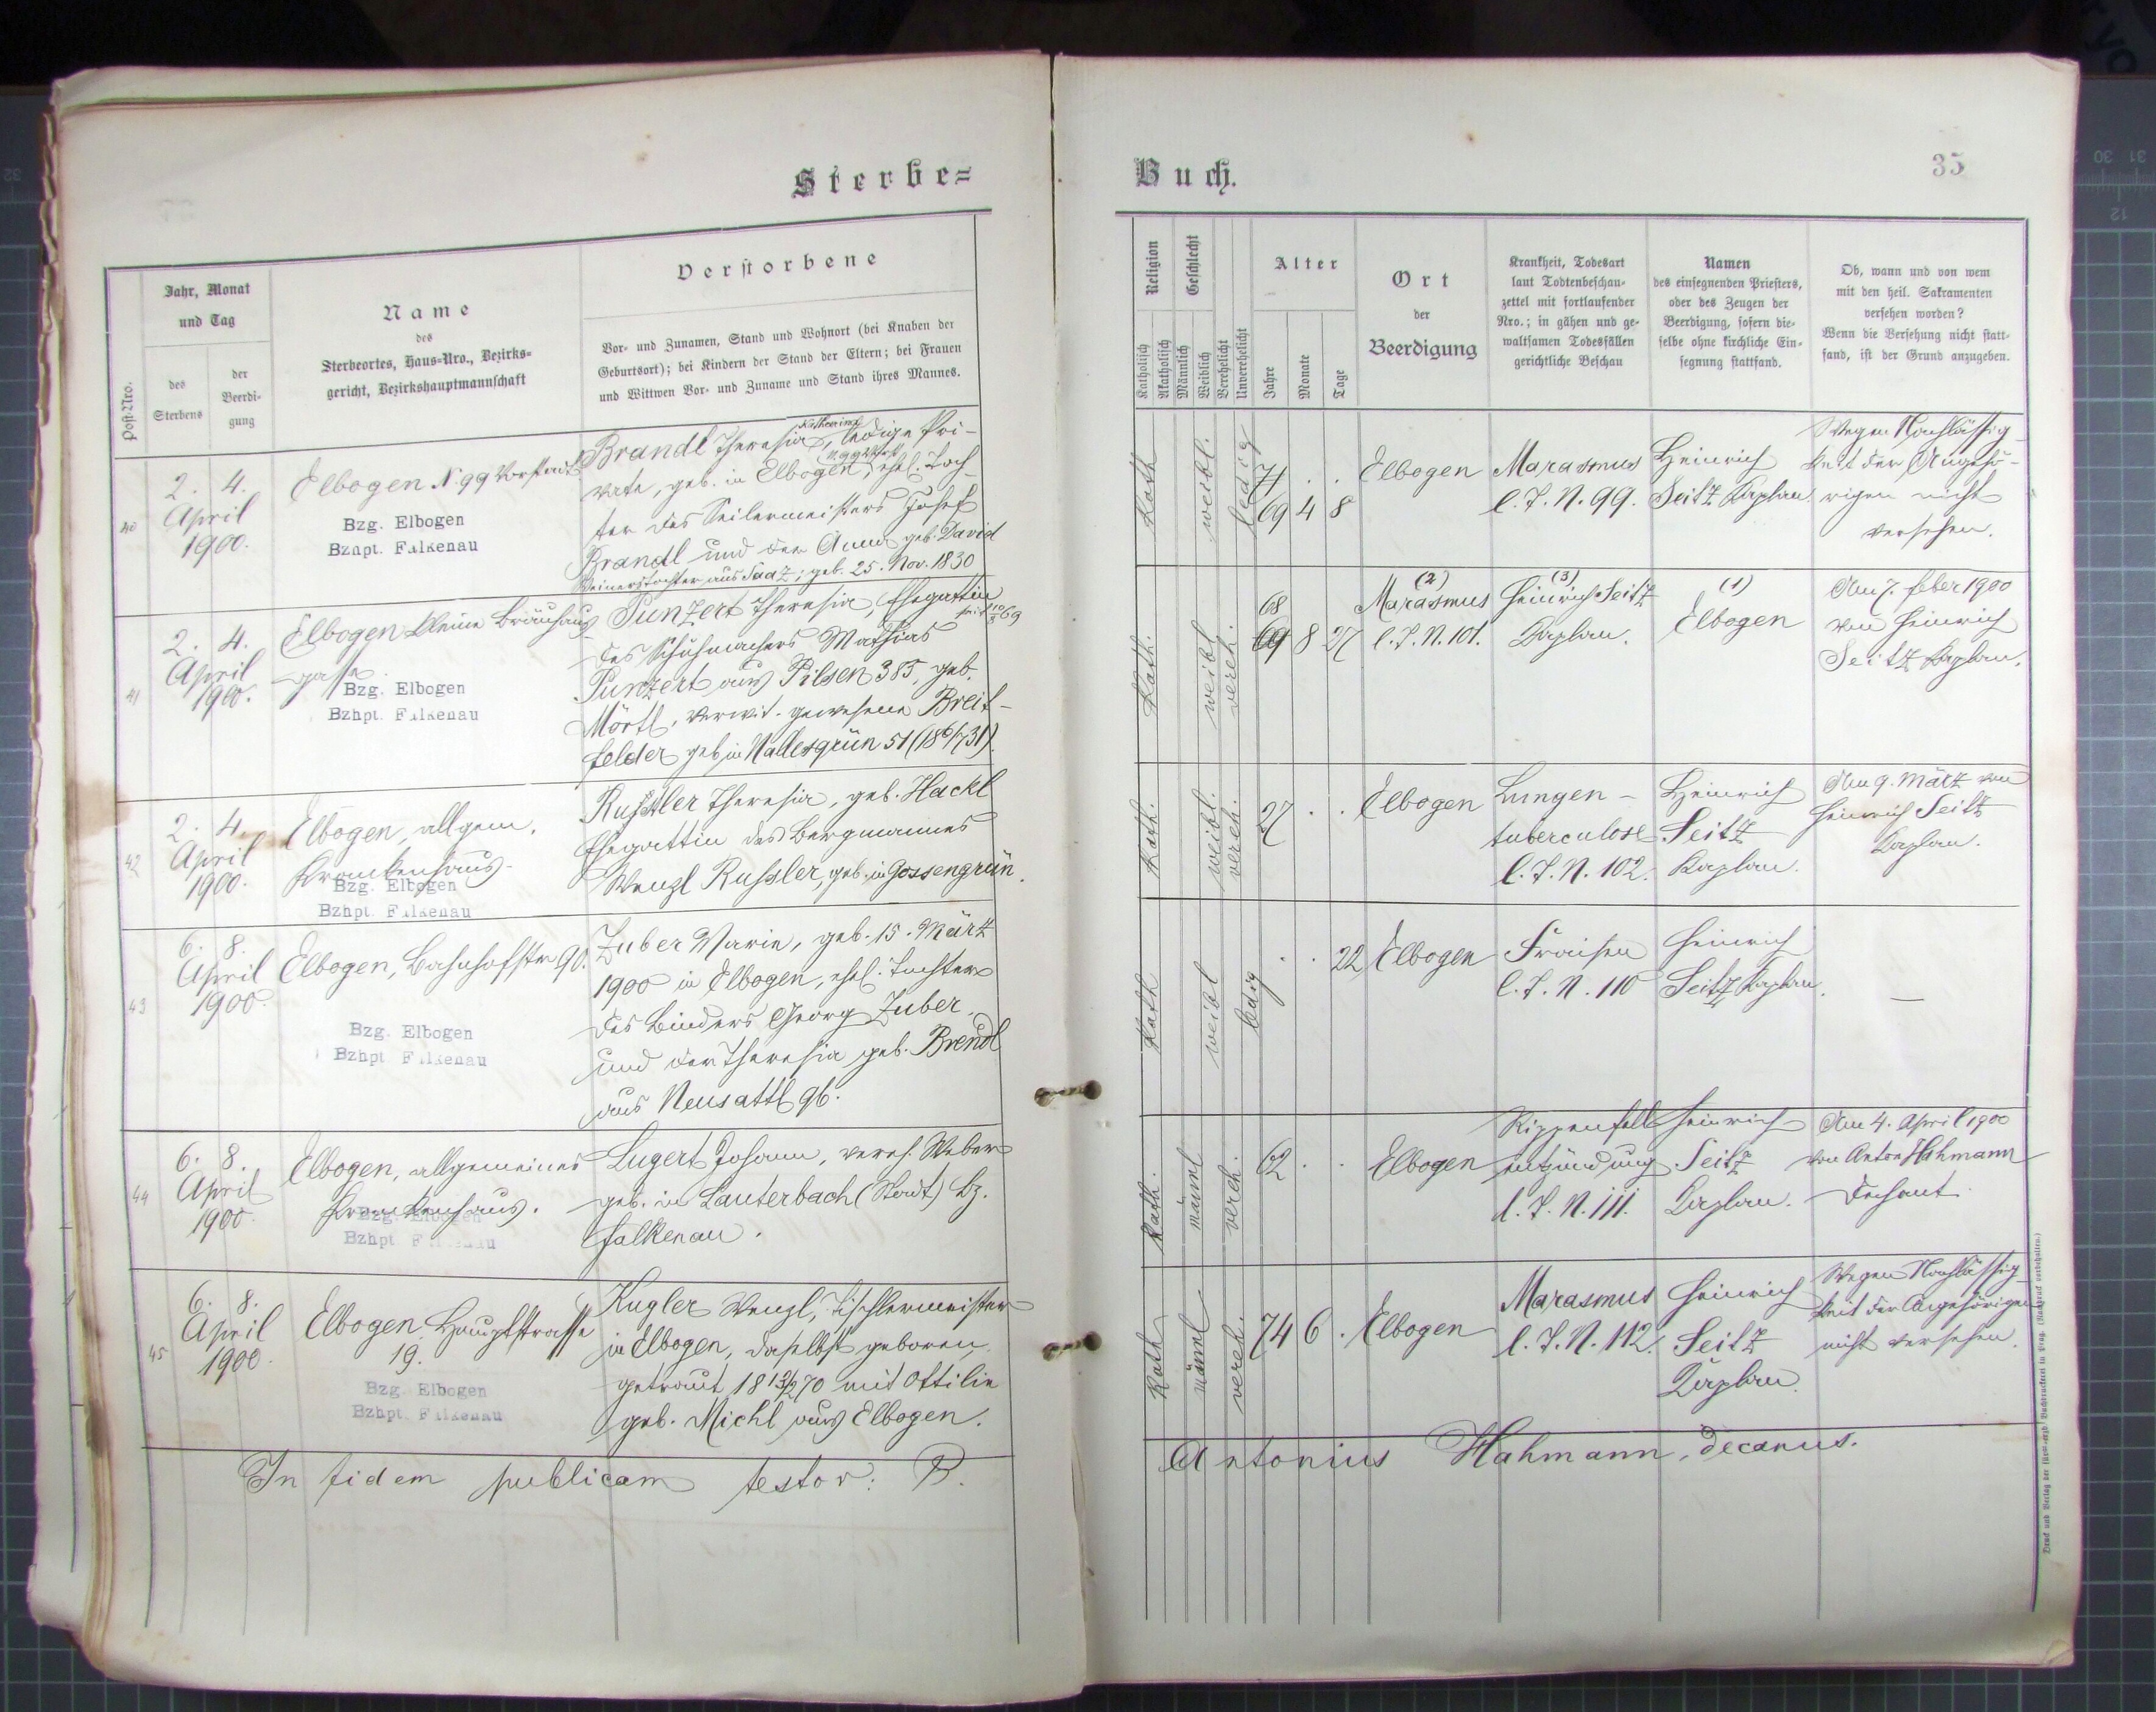 Sterbe=
Jahr, Monat
und Tag
Name
des
Sterbeortes, Haus-Nro., Bezirks-
gericht, Bezirkshauptmannschaft
Verstorbene
Vor- und Zunamen, Stand und Wohnort (bei Knaben der
Geburtsort); bei Kindern der Stand der Eltern; bei Frauen
und Wittwen Vor- und Zuname und Stand ihres Mannes.
Post-Nro.
des
Sterbens
der
Beerdi-
gung
40
2. 4.
April
1900.
Elbogen N. 99 Vorstadt
Bzg. Elbogen
Bzhpt. Falkenau
Katharina
Brandl Theresia, ledige Pri-
vate, geb. in Elbogen, ehel. Toch-
ter des Seilermeisters Josef
Brandl und der Anna geb. David
aus Saaz; geb. 25. Nov. 1830
41
2. 4.
April
1900.
Elbogen kleine Bräuhaus
gasse
Bzg. Elbogen
Bzhpt. Falkenau
Punzert Theresia, Ehegattin
des Schuhmachers Mathias
Punzert aus Pilsen 385, geb.
Mörtl, verwit. gewesene Breit-
felder geb. in Nallesgrün 51 (18 6/7 31).
42
2. 4.
April
1900.
Elbogen, allgem.
Krankenhaus.
Bzg. Elbogen
Bzhpt. Falkenau
Russler Theresia, geb. Hackl
Ehegattin des Bergmannes
Wenzl Russler, geb. in Gossengrün.
43
6. 8.
April
1900.
Elbogen, Bahnhofstr 90.
Bzg. Elbogen
Bzhpt. Falkenau
Zuber Marie, geb. 15. März
1900 in Elbogen, ehel. Tochter
des Binders Georg Zuber
und der Theresia geb. Brendl
aus Neusattl 96.
44
6. 8.
April
1900.
Elbogen, allgemeines
Krankenhaus.
Bzg. Elbogen
Bzhpt. Falkenau
Lugert Johann, vereh. Weber
geb. in Lauterbach (Stadt) Bz.
Falkenau.
45
6. 8.
April
1900.
Elbogen Hauptstrasse
19.
Bzg. Elbogen
Bzhpt. Falkenau
Kugler Wenzl, Tischlermeister
in Elbogen, daselbst geboren,
getraut 18 13/2 70 mit Ottilie
geb. Michl aus Elbogen.
In fidem publicam testor: P.
Buch.
35
Religion
Katholisch
Akatholisch
Geschlecht
Männlich
Weiblich
Verehelicht
Unverehelicht
Alter
Jahre
Monate
Tage
Ort
der
Beerdigung
Krankheit, Todesart
laut Todtenbeschau-
zettel mit fortlaufender
Nro.; in gähen und ge-
waltsamen Todesfällen
gerichtliche Beschau
Namen
des einsegnenden Priesters,
oder des Zeugen der
Beerdigung, sofern die-
selbe ohne kirchliche Ein-
segnung stattfand.
Ob, wann und von wem
mit den heil. Sakramenten
versehen worden?
Wenn die Versehung nicht statt-
fand, ist der Grund anzugeben.
Kath
weibl.
ledig
71 . .
69 4 8
Elbogen
Marasmus
l. J. N. 99.
Heinrich
Seitz Kaplan.
Wegen Nachlässig-
keit der Angehö-
rigen nicht
versehen.
Kath.
weibl.
vereh.
68
69 8 27
(2)
Marasmus
l. J. N. 101.
(3)
Heinrich Seitz
Kaplan.
(1)
Elbogen
Am 7. Feber 1900
von Heinrich
Seitz Kaplan.
Kath.
weibl.
vereh.
27 . .
Elbogen
Lungen-
tuberculose
l. J. N. 102.
Heinrich
Seitz
Kaplan.
Am 9. März von
Heinrich Seitz
Kaplan.
Kath
weibl
ledig
. . 22
Elbogen
Fraisen
l. J. N. 110
Heinrich
Seitz Kaplan.
—
Kath.
männl
vereh.
62 . .
Elbogen
Rippenfell
entzündung
l. J. N. 111.
Heinrich
Seitz
Kaplan.
Am 4. April 1900
von Anton Hahmann
Dechant.
Kath
männl
vereh.
74 6 .
Elbogen
Marasmus
l. J. N. 112.
Heinrich
Seitz
Kaplan.
Wegen Nachlässig-
keit der Angehörigen
nicht versehen.
Antonius Hahmann, decanus.